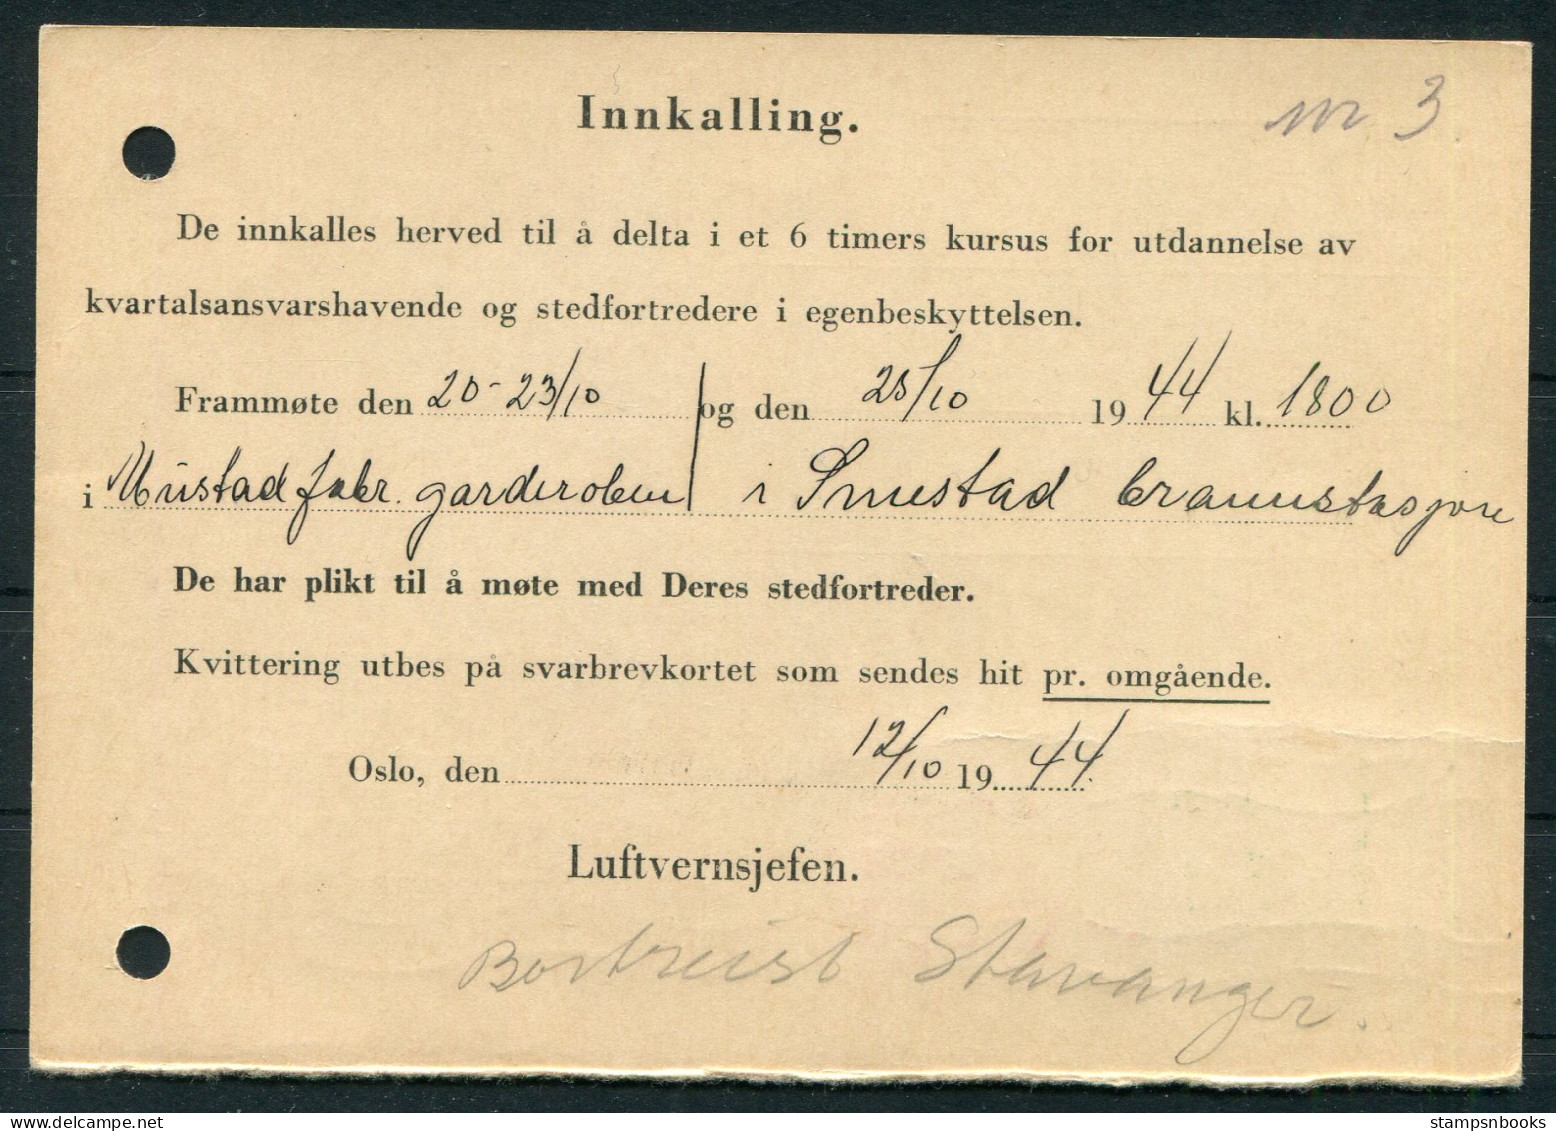 Innkalling.
nr 3
De innkalles herved til å delta i et 6 timers kursus for utdannelse av
kvartalsansvarshavende og stedfortredere i egenbeskyttelsen.
Frammøte den 20-23/10 og den 25/10 1944 kl. 1800
i Mustad fabr. garderoben i Smestad brannstasjon
De har plikt til å møte med Deres stedfortreder.
Kvittering utbes på svarbrevkortet som sendes hit pr. omgående.
Oslo, den 12/10 1944.
Luftvernsjefen.
Bortreist Stavanger.
stampsnbooks